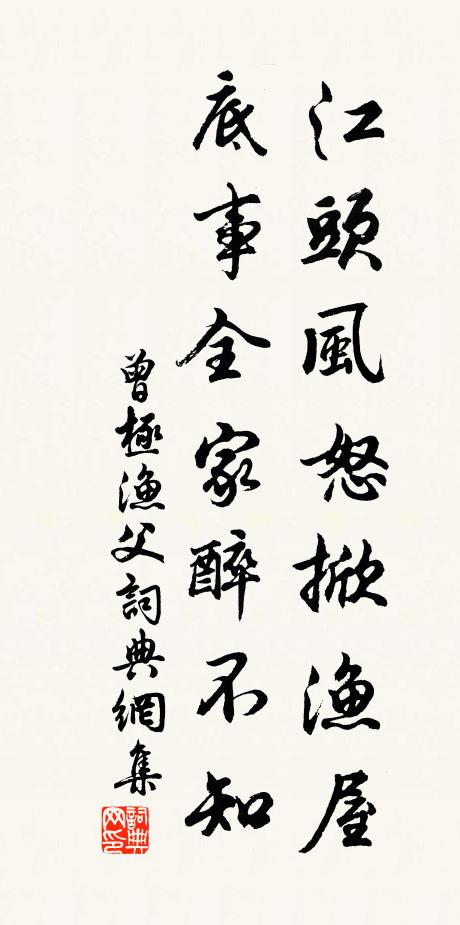 江頭風怒掀漁屋
底事全家醉不知
曾極漁父詞典網集
詞典网印